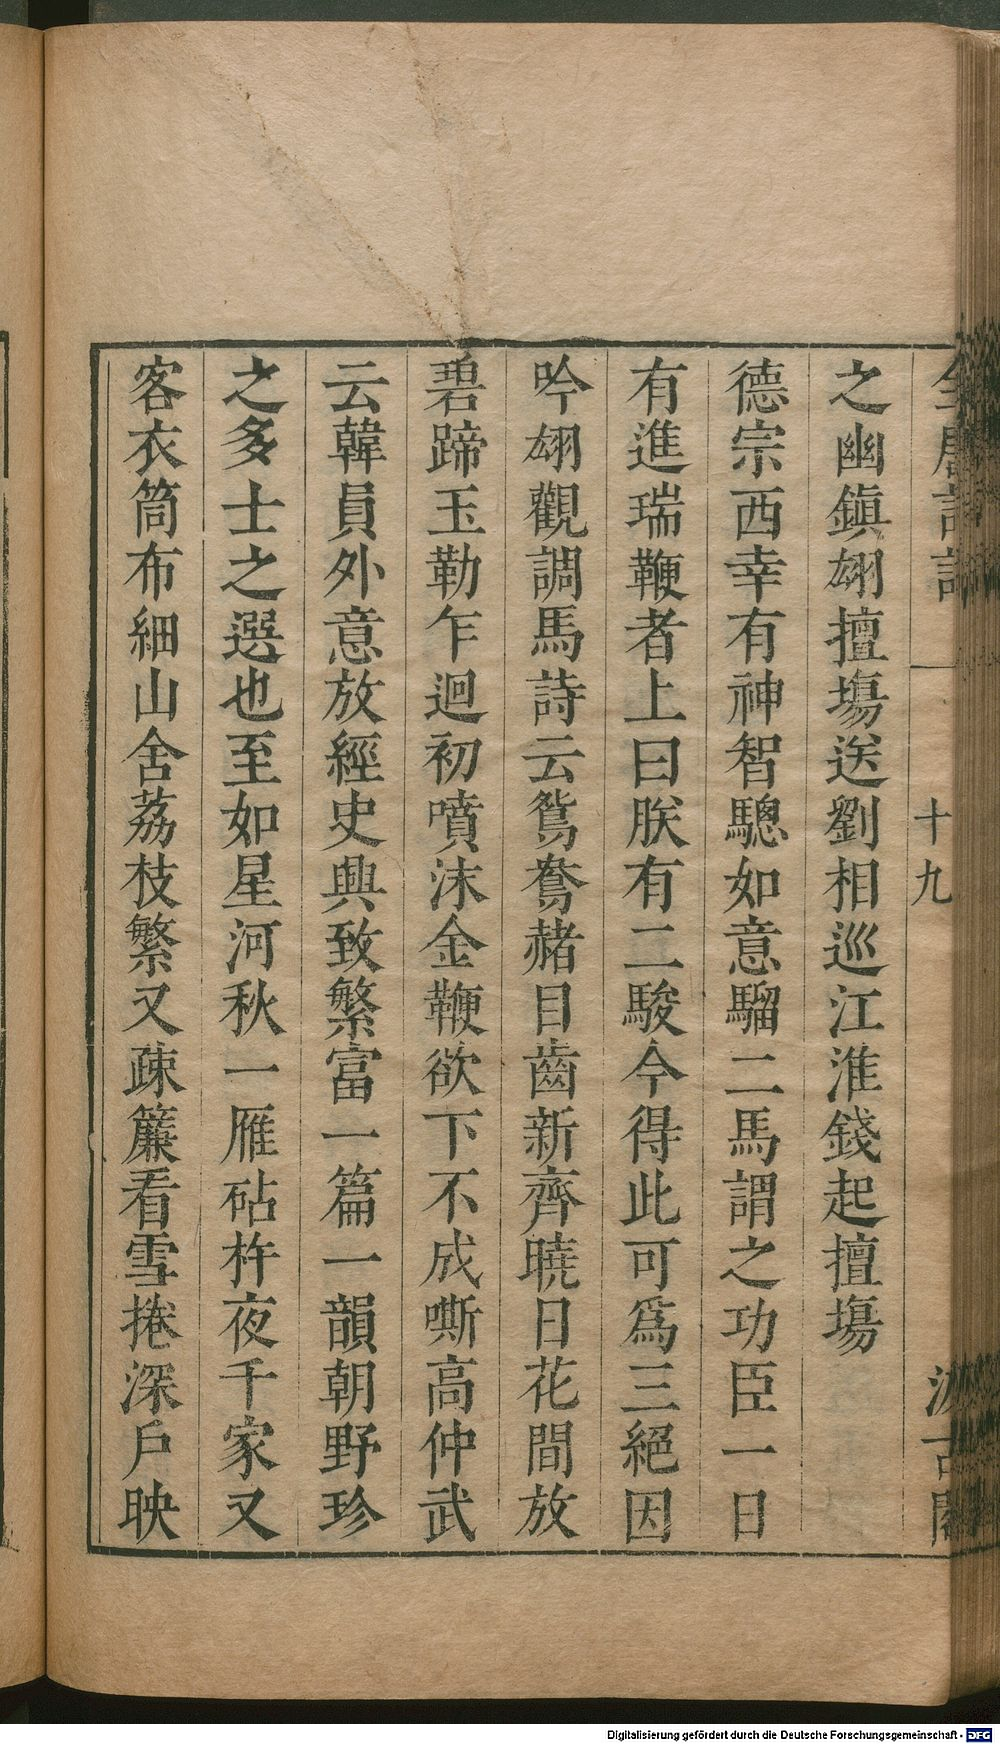 十九
之幽鎮翃擅塲送劉相巡江淮錢起擅塲
德宗西幸有神智驄如意騮二馬謂之功臣一日
有進瑞鞭者上曰朕有二駿今得此可爲三絕因
吟翃觀調馬詩云鴛鴦赭目齒新齊曉日花間放
碧蹄玉勒乍迴初噴沫金鞭欲下不成嘶高仲武
云韓員外意放經史興致繁富一篇一韻朝野珍
之多士之選也至如星河秋一雁砧杵夜千家又
客衣筒布細山舍荔枝繁又疎簾看雪捲深戶映
Digitalisierung gefördert durch die Deutsche Forschungsgemeinschaft - DFG